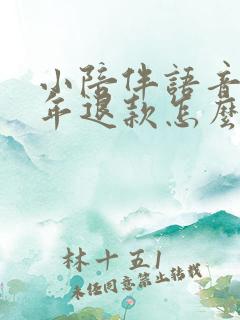 小陪伴語音
年退款怎麼
林十五1
未经同意禁止转载